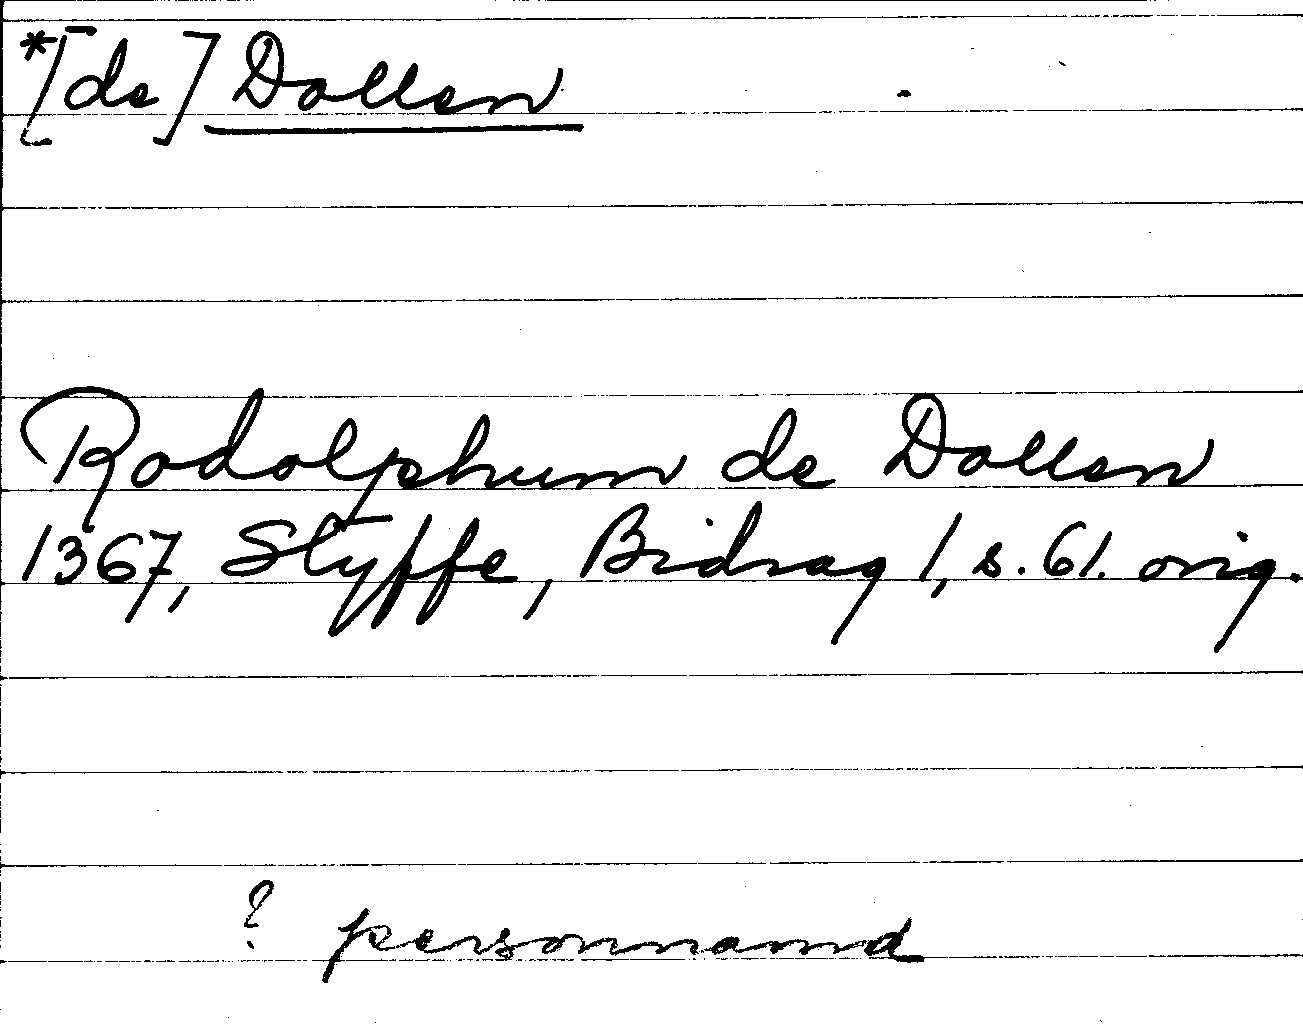 *[de] Dollen
Rodolphum de Dollen
1367, Styffe, Bidrag 1, s. 61. orig.
? personnamnd